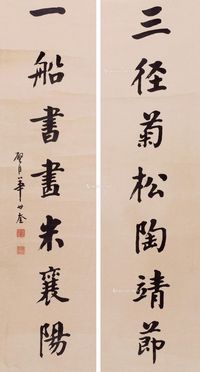 三径菊松陶靖節
一船書畫米襄陽
華世奎